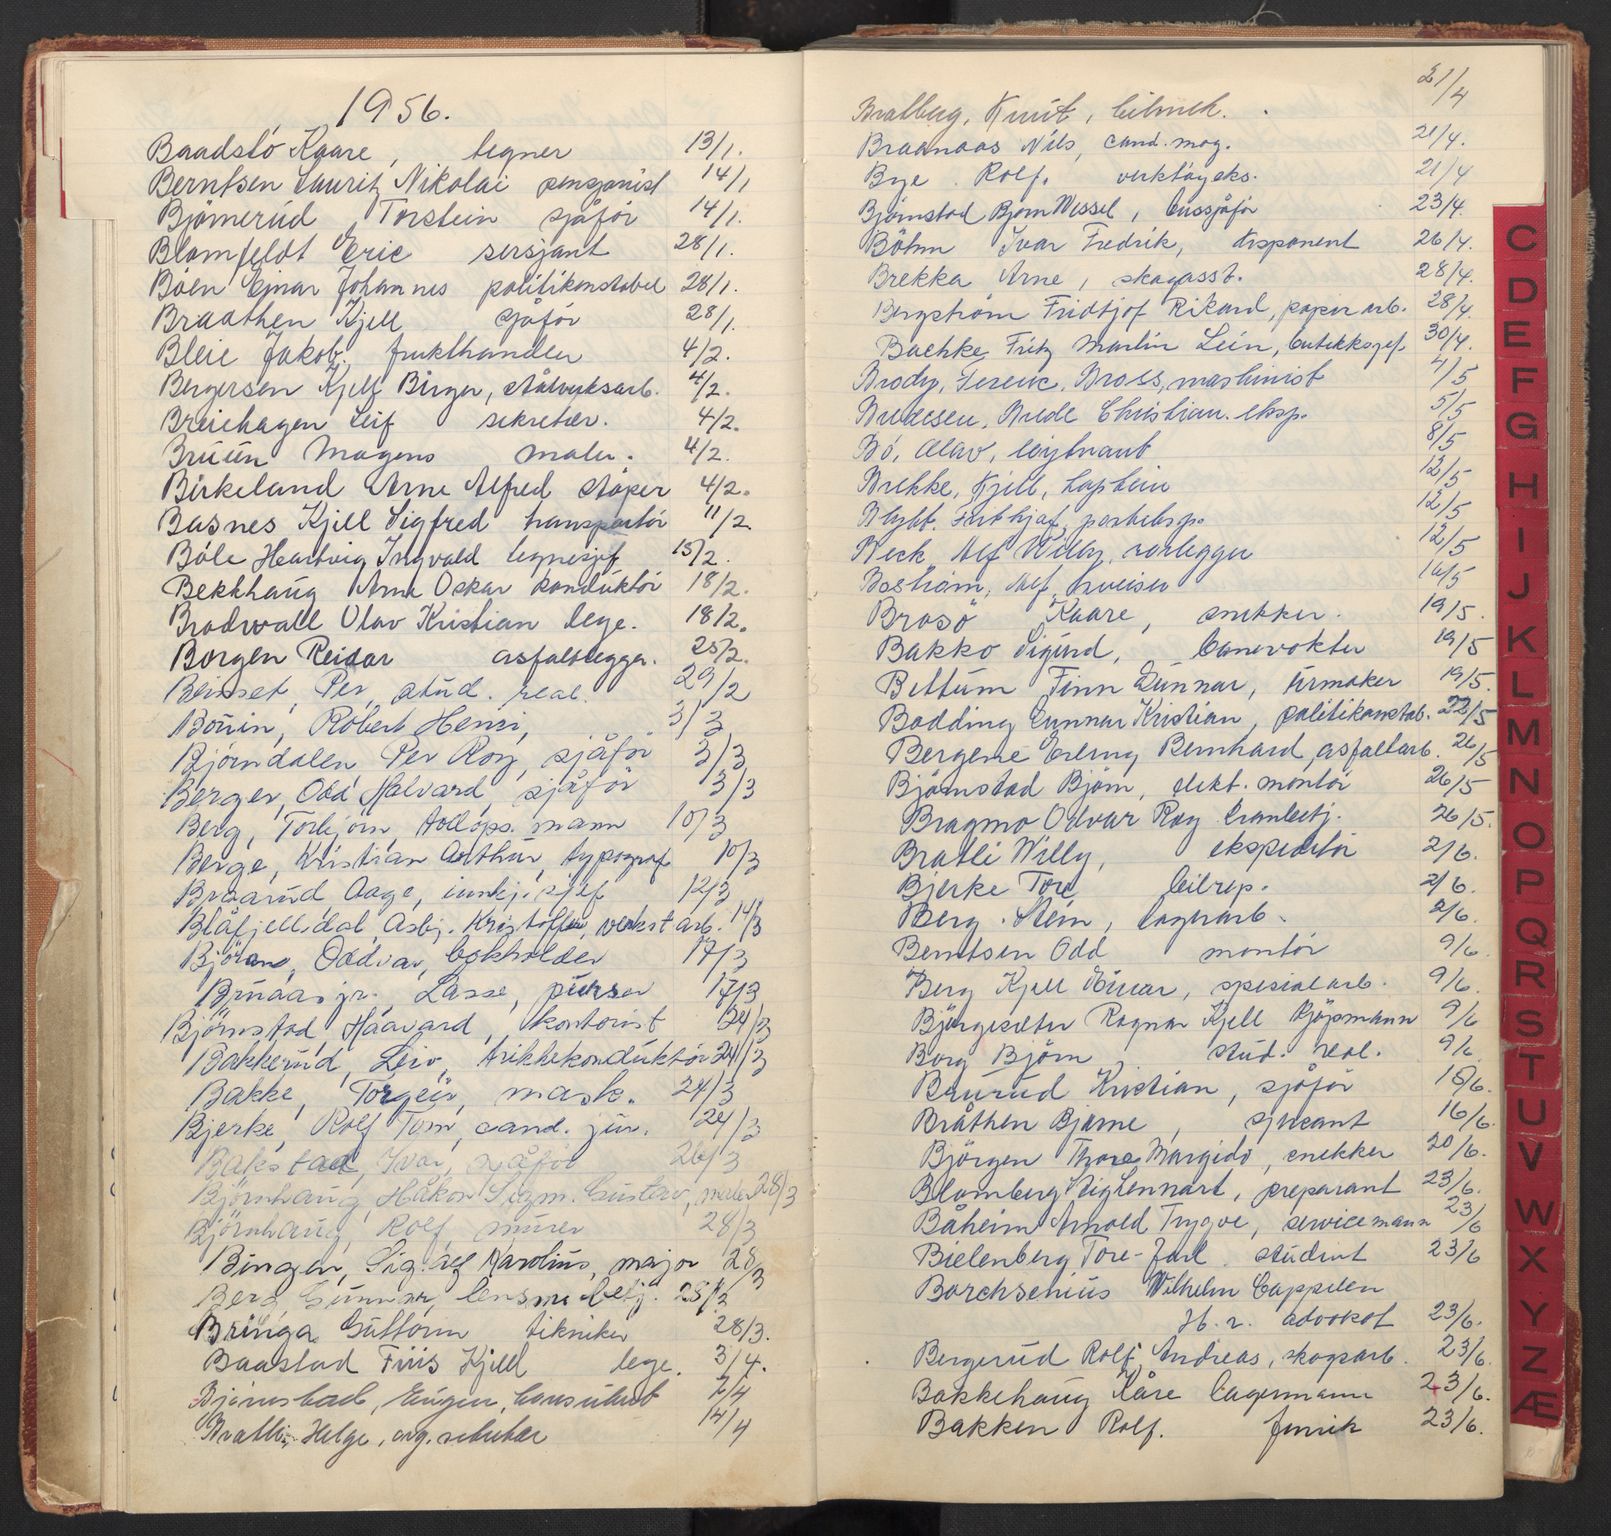 1956.
Baadstö Kaare, tegner 13/1.
Berntsen Lauritz Nikolai pensjonist 14/1
Björnerud Torstein sjåför 14/1.
Blomfeldt Eric sersjant 28/1.
Böen Ejnar Johannes politikonstabel 28/1.
Braathen Kjell, sjåför 28/1.
Bleie Jakob, frukthandler 4/2.
Bergersen Kjell Birger, stålverksarb. 4/2.
Breiehagen Leif sekretær. 4/2.
Bruun Mogens maler. 4/2.
Birkeland Arne Alfred støper 4/2.
Basnes Kjell Sigfred transportör 11/2
Böle Hartvig Ingvald tegnesjef 15/2.
Bekkhaug Arne Oskar konduktör 18/2.
Brodwall Olav Kristian lege. 18/2.
Borgen Reidar asfaltlegger. 25/2.
Beinset, Per, stud. real. 29/2
Bouin, Robert Henri, 3/3
Bjørndalen Per Roy, sjåför 3/3
Berger, Odd Halvard, sjåför 3/3
Berg, Torbjörn, tollops. mann 10/3
Berge, Kristian Arthur, typograf 10/3
Braarud Aage, innkj. sjef 12/3
Blåfjelldal, Asbj. Kristoffer, verkst arb. 14/3
Björano, Oddvar, bokholder 17/3
Bruaas jr., Lasse, purser 17/3
Björnstad, Haavard, kontorist 24/3
Bakkerud, Leiv, trikkekonduktör 24/3
Bakke, Torgeir, mask. 24/3
Bjerke, Rolf Tom, cand. jur. 24/3
Bakstad, Ivar, sjåför 26/3
Björnhaug, Håkon Sigm. Gustav, maler 28/3
Björnhaug, Rolf, murer 28/3
Bingen, Sig. Alf Karolius, major 28/3
Berg, Gunnar, lensm. betj. 28/3
Bringa Guttorm tekniker 28/3.
Baastad Friis Kjell lege. 3/4.
Björnstad, Eugen, konsulent 7/4
Bratli, Helge, org. sekretær 14/4
Bratberg, Knut, bilmek. 21/4
Braanaas Nils, cand. mag. 21/4.
Bye Rolf. verktöyeks. 21/4
Björnstad Bjørn Wessel, bussjåför 23/4.
Böhm Ivar Fredrik, disponent 26/4.
Brekka Arne, skogasst. 28/4.
Bergström Fridtjof Rikard, papir arb. 28/4.
Baehke Fritz Martin Lein, butikksjef 30/4.
Brody, Ferenc, Bross, maskinist 4/5
Bredesen, Brede Christian. eksp. 5/5
Bö, Olav, löytnant 8/5
Brekke, Kjell, kaptein 12/5
Blybt. Frithjof, posteksp. 12/5
Beck Alf Willy, rørlegger 12/5
Boström, Alf, sveiser 16/5
Brosö Kaare, snekker. 19/5.
Bakko Sigurd, banevokter 19/5
Bettum Finn Gunnar, urmaker 19/5.
Bodding Gunnar Kristian, politikonstab. 22/5
Bergene Erling Bernhard, asfaltarb. 26/5
Björnstad Björn, elekt. montör 26/5
Bragmo Odvar Roy branbetj. 26/5.
Bratli Willy, ekspeditör 2/6.
Bjerke Tore bilrep. 2/6.
Berg. Stein, lagerarb. 2/6.
Berntsen Odd montör 9/6.
Berg Kjell Einar, spesialarb. 9/6.
Björgesæter Ragnar Kjell kjöpmann 9/6
Borg Björn, stud. real. 9/6.
Baurud Kristian, sjåför 16/6.
Bråthen Bjarne, sjersant 16/6.
Björgen Thore Margido, snekker 20/6.
Blomberg Stig Lennart, preparant 23/6.
Båheim Arnold Trygve, servicemann 23/6
Bielenberg Tore-Jarl. student 23/6
Borchsenius Wilhelm Cappelen
H. r. advokat 23/6.
Bergerud Rolf Andreas, skogsarb. 23/6.
Bakkehaug Kåre lagermann 23/6.
Bakken Rolf. fenrik 23/6.
C
D
E
F
G
H
I
J
K
L
M
N
O
P
Q
R
S
T
U
V
W
X
Y
Z
Æ